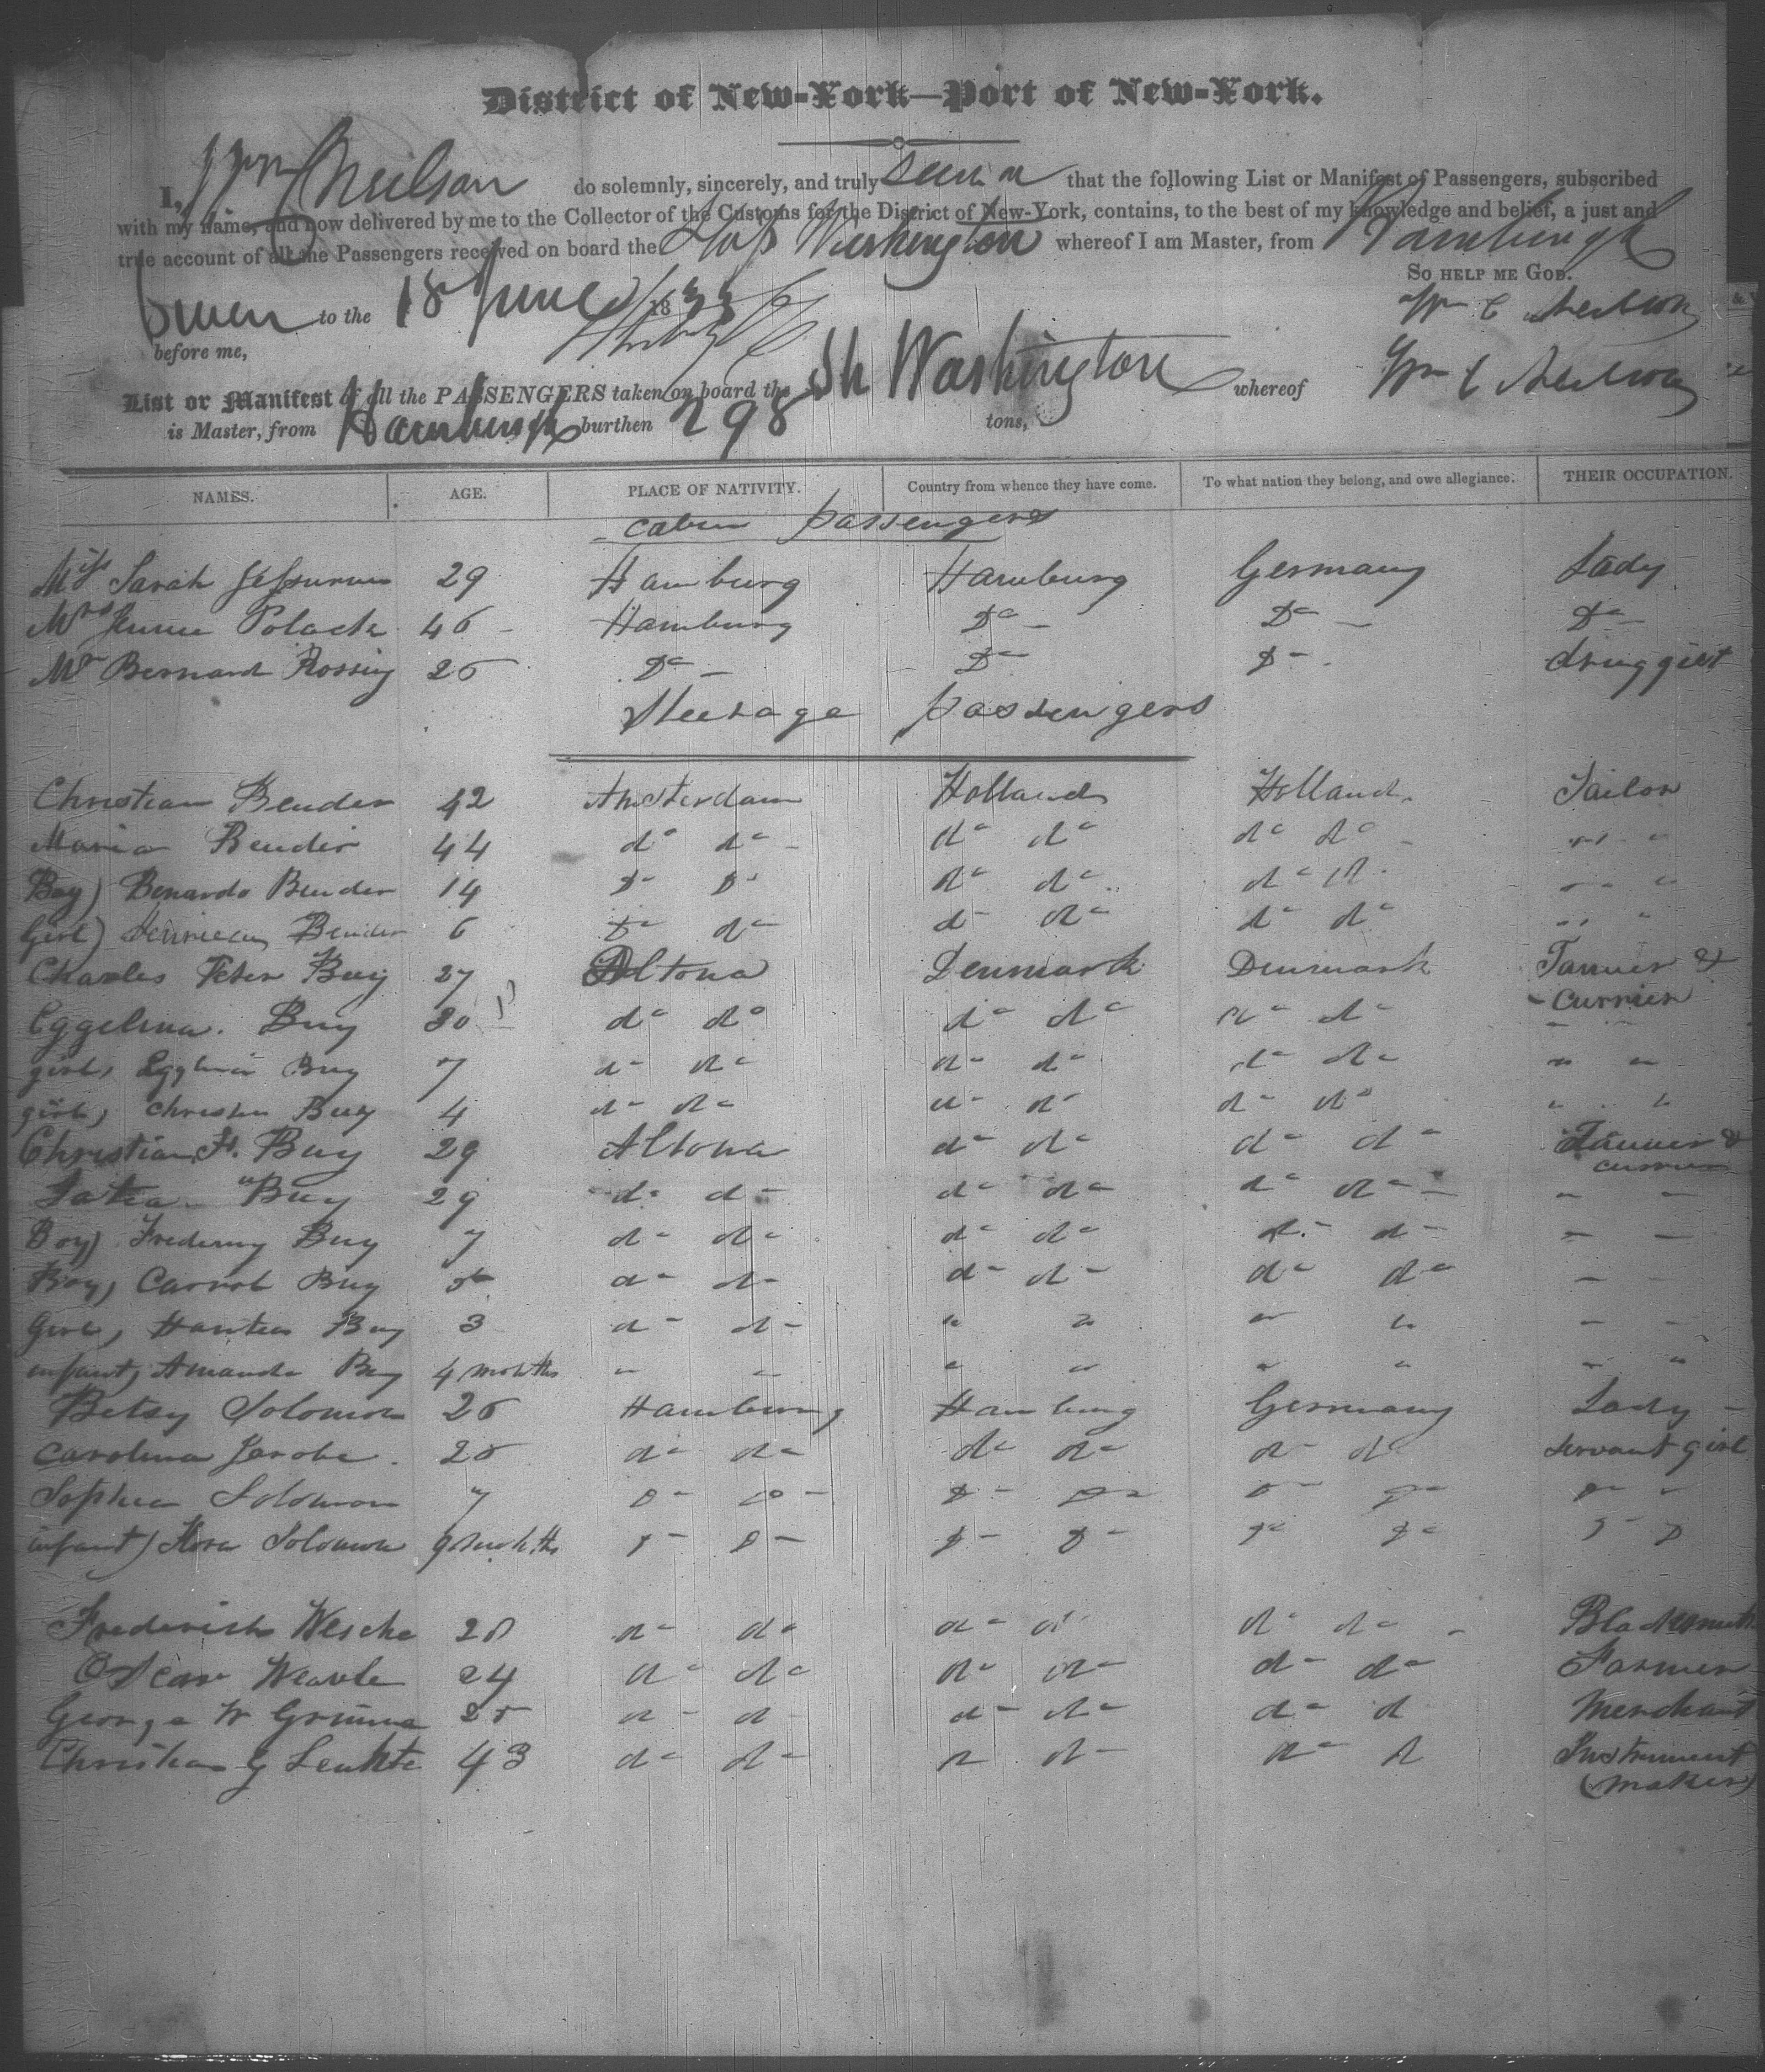 District of New-York—Port of New-York.
I, Wm C Neilson do solemnly, sincerely, and truly swear that the following List or Manifest of Passengers, subscribed
with my name, and now delivered by me to the Collector of the Customs for the District of New-York, contains, to the best of my knowledge and belief, a just and
true account of all the Passengers received on board the Ship Washington whereof I am Master, from Hamburgh
So help me God.
Sworn to the 18 June 1833 Wm C Neilson
before me,
List or Manifest of all the PASSENGERS taken on board the Sh Washington whereof Wm C Neilson
is Master, from Hamburgh burthen 298 tons,
NAMES. AGE. PLACE OF NATIVITY. Country from whence they have come. To what nation they belong, and owe allegiance. THEIR OCCUPATION.
cabin passengers
Miss Sarah 29 Hamburg Hamburg Germany Lady
Mrs Polack 46 Hamburg Do Do Do
Mr Bernard Rossing 26 Do Do Do druggist
Steerage passengers
Christian Bender 42 Amsterdam Holland Holland Tailor
Maria Bender 44 do do do do do do " "
Boy) Benardo Bender 14 Do Do do do do do " "
Girl) Bender 6 Do do do do do do " "
Charles Peter Buy 27 Altona Denmark Denmark Tanner &
currier
Eggelina. Buy 30 do do do do do do " "
girl, Buy 7 do do do do do do " "
girl, Buy 4 do do do do do do " "
Christian F. Buy 29 Altona do do do do Tanner &
currier
Buy 29 do do do do do do " "
Boy) Buy 7 do do do do do do " "
Boy, Buy do do do do do do " "
Girl, Buy 3 do do " " " " " "
infant, Amanda Buy 4 months " " " " " " " "
Betsy Solomon 26 Hamburg Hamburg Germany Lady
Carolina do do do do do do servant girl
Sophia Solomon 7 Do Do Do Do Do Do Do "
infant) Flora Solomon 9 months Do Do Do Do Do Do Do Do
Frederich Wesche 28 do do do do do do Blacksmith
Oscar 24 do do do do do do Farmer
George W Grimme 25 do do do do do do Merchant
Christian G 43 do do do do do do Instrument
(maker)